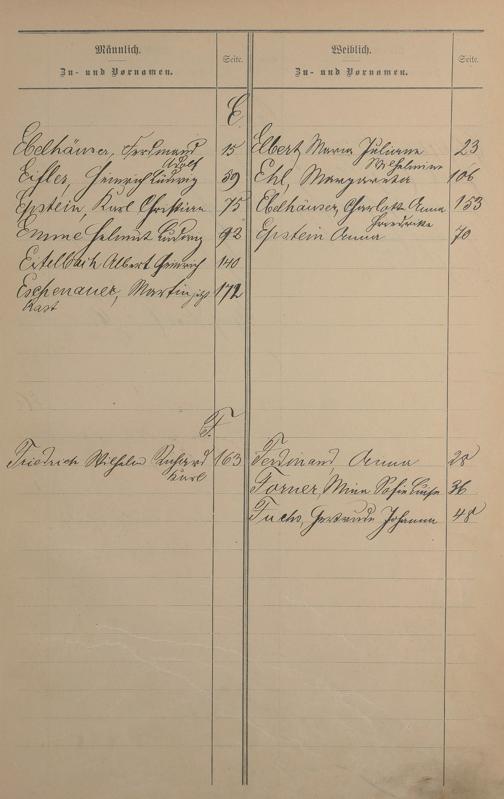 Männlich.
Zu- und Vornamen.
Seite.
Weiblich.
Zu- und Vornamen.
Seite.
E.
Ebelhäuser, Ferdinand 15
Adolf
Eifler, Heinrich Ludwig 59
Epstein, Karl Christian 75
Emme Helmut Ludwig 92
Eitelbach Albert Heinrich 140
Eschenauer, Martin 172
Kast
Elbert, Maria Juliane 23
Wilhelmine
Ehl, Margareta 106
Ebelhäuser, Charlotte Anna 153
Friedrike
Epstein Anna 70
F.
Friedrich Wilhelm Richard 163
Karl
Ferdinand, Anna 28
Forner, Mina Sofie Luise 36
Fuchs, Gertrude Johanna 48